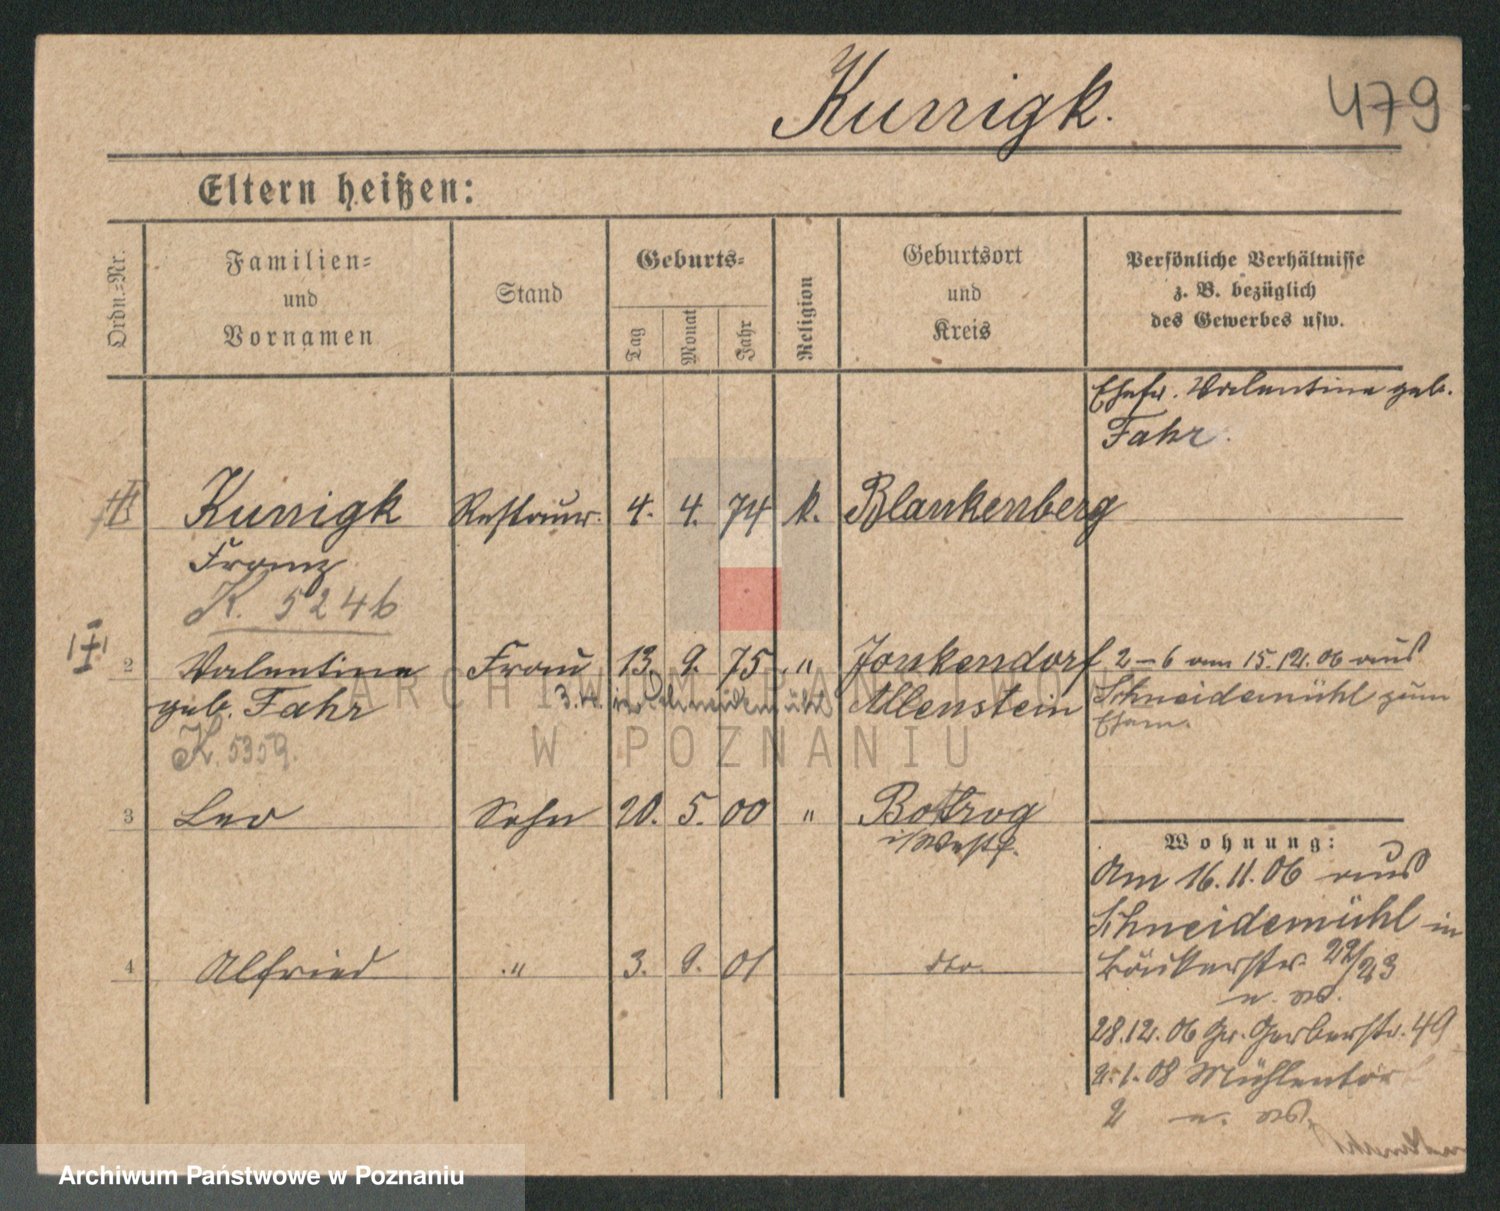 Kunigk.
479
Eltern heißen:
Ordn.-Nr.
Familien-
und
Vornamen
Stand
Geburts-
Tag
Monat
Jahr
Religion
Geburtsort
und
Kreis
Persönliche Verhältnisse
z. B. bezüglich
des Gewerbes usw.
Ehefr. Valentine geb.
Fahr.
Kunigk Restaur. 4. 4. 74 k. Blankenberg
Franz
K. 5246
2 Valentine Frau 13. 9. 75 " Jonkendorf 2-6 am 15.12.06 aus
geb. Fahr 3.4. in Schneidemühl Allenstein Schneidemühl zum
Ehem.
K. 5359.
3 Leo Sohn 20. 5. 00 " Bottrog
i/Westf.
Wohnung:
Am 16.11.06 aus
Schneidemühl in
4 Alfried " 3. 9. 01 dto. Bäckerstr. 22/23
28.12.06 Gr. Gerberstr. 49
2.1.08 Mühlentor
2
ARCHIWUM PAŃSTWOWE
W POZNANIU
Archiwum Państwowe w Poznaniu